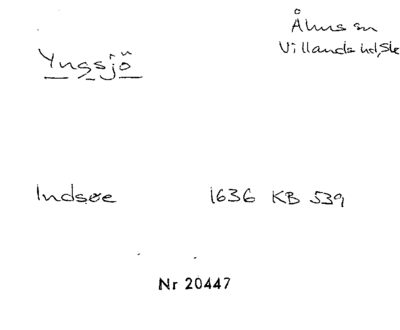 Åhus sn
Villands hd, Sk
Yngsjö
Indsøe 1636 KB 539
Nr 20447